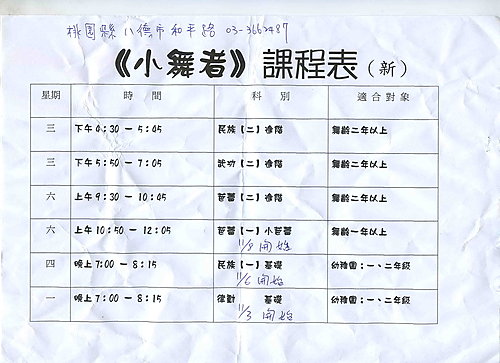 桃園縣八德市和平路 03-3663487
《小舞者》課程表（新）
星期 時間 科別 適合對象
三 下午4:30－5:45 民族【二】進階 舞齡二年以上
三 下午5:50－7:05 武功【二】進階 舞齡二年以上
六 上午9:30－10:45 芭蕾【二】進階 舞齡二年以上
六 上午10:50－12:05 芭蕾【一】小芭蕾 舞齡一年以上
11/8 開始
四 晚上7:00－8:15 民族【一】基礎 幼稚園；一、二年級
11/6 開始
一 晚上7:00－8:15 律動 基礎 幼稚園；一、二年級
11/3 開始